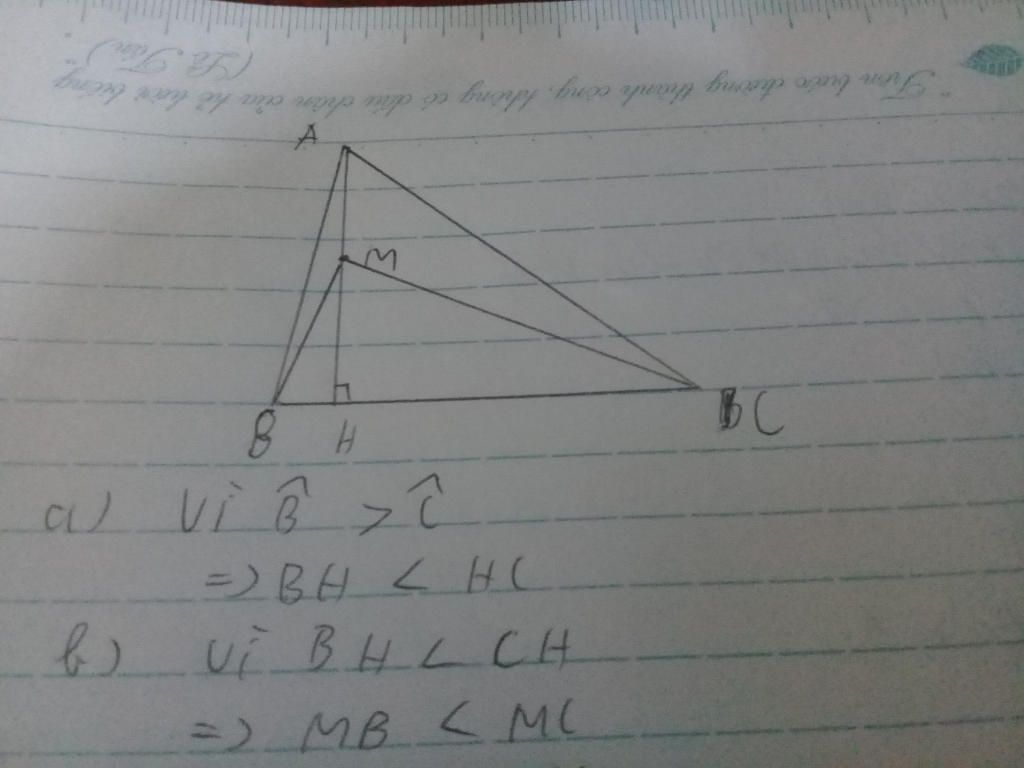 "Trên bước đường thành công, không có dấu chân của kẻ lười biếng"
(Lỗ Tấn)
A
M
B H C
a) Vì B̂ > Ĉ
=> BH < HC
b) Vì BH < CH
=> MB < MC